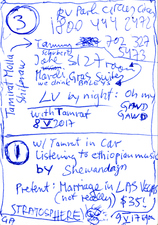 3
RV Park Circus Circus
1800 444 2472
Tamrat Mulla
702 327
5473
Jale 312 7 row
Mardi Gras Suites
LV by night: Oh my
GAWD
GAWD
with Tamrat
8 V 2017
1
w/ Tamrat in car
Listening to ethiopian music
by Shewandagn
Pretent: Marriage in LAS VEGAS
(not really) $35!
STRATOSPHERE
9 V 17
GA